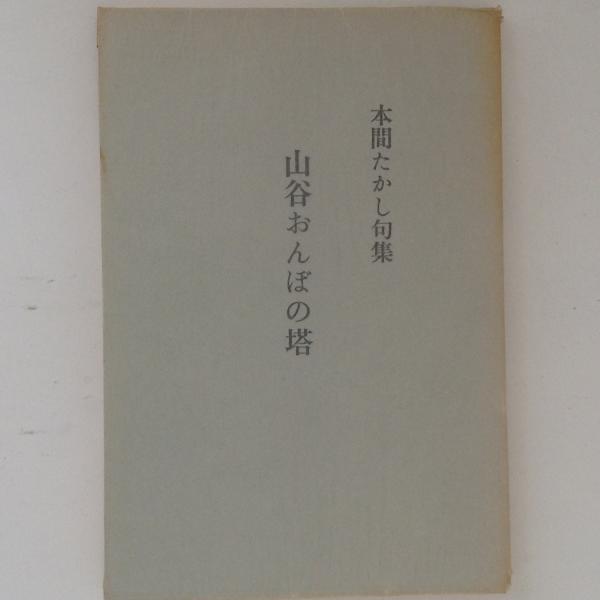 本間たかし句集
山谷おんぼの塔